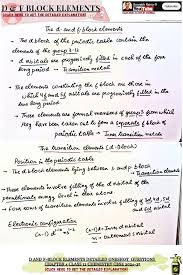 D & F BLOCK ELEMENTS
(CLICK HERE TO GET THE DETAILED EXPLANATION)
The d- and f- block elements
The d block of the periodic table contain the
elements of the group 3-12
d orbitals are progressively filled in each of the four
long period - Transition metals
The elements constituting f block are those in
which 4f and 5f orbitals are progressively filled in the
two long period.
These elements are formal members of group 3 from which
they have been taken out to form a separate f block
of the periodic table - Inner Transition metals
The transition elements (d-block)
Position in the periodic table
The d-block elements lying between s and p-block
- Transition elements
These elements involve filling of the d orbital of the
penultimate energy level or shell
Four series of transition elements involve filling of 3d, 4d, 5d
Electronic configuration
(n-1) d¹⁻¹⁰ ns¹⁻²
(n-1) = Inner d orbital
n = outermost s orbital
D AND F-BLOCK ELEMENTS DETAILED ONESHOT QUESTIONS
CHAPTER 4 CLASS 12 CHEMISTRY CBSE 2024-25
(CLICK HERE TO GET THE DETAILED EXPLANATION)